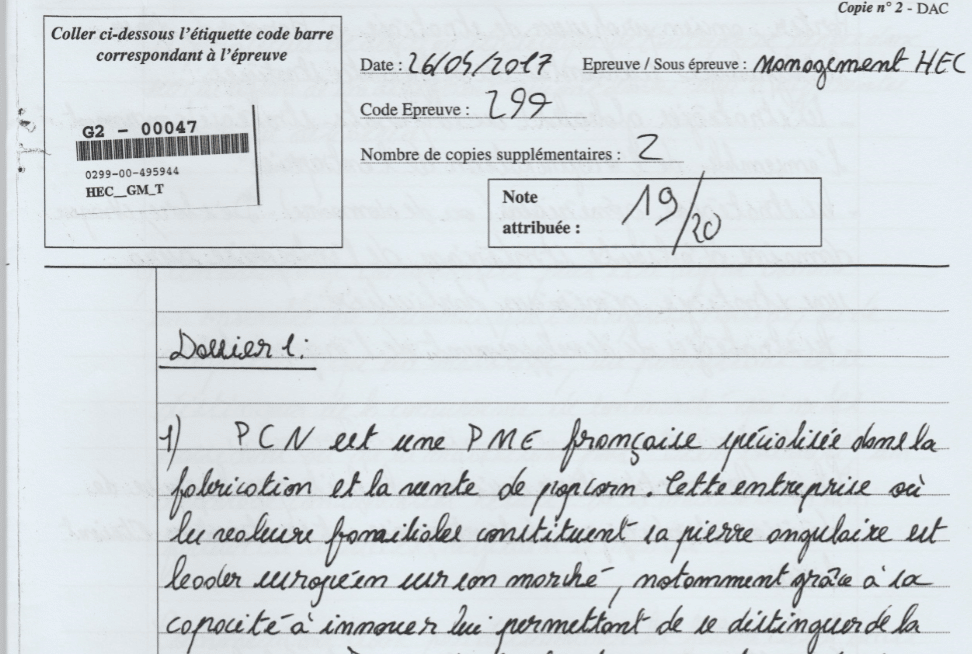 Copie n° 2 - DAC
Coller ci-dessous l'étiquette code barre
correspondant à l'épreuve
G2 - 00047
0299-00-495944
HEC__GM_T
Date : 26/05/2017 Epreuve / Sous épreuve : Management HEC
Code Epreuve : 299
Nombre de copies supplémentaires : 2
Note
attribuée : 19/20
Dossier 1:
1) PCN est une PME française spécialisée dans la
fabrication et la vente de popcorn. Cette entreprise où
les valeurs familiales constituent sa pierre angulaire est
leader européen sur son marché, notamment grâce à sa
capacité à innover lui permettant de se distinguer de la